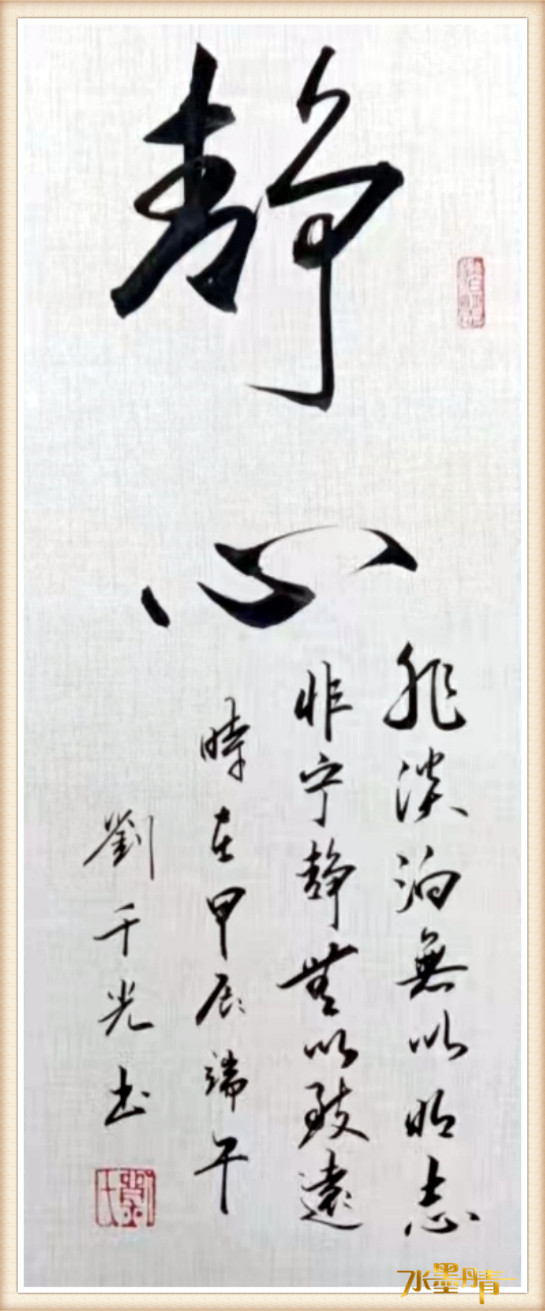 静心
非淡泊無以明志
非宁静無以致遠
時在甲辰端午
劉千光书
水墨丹青